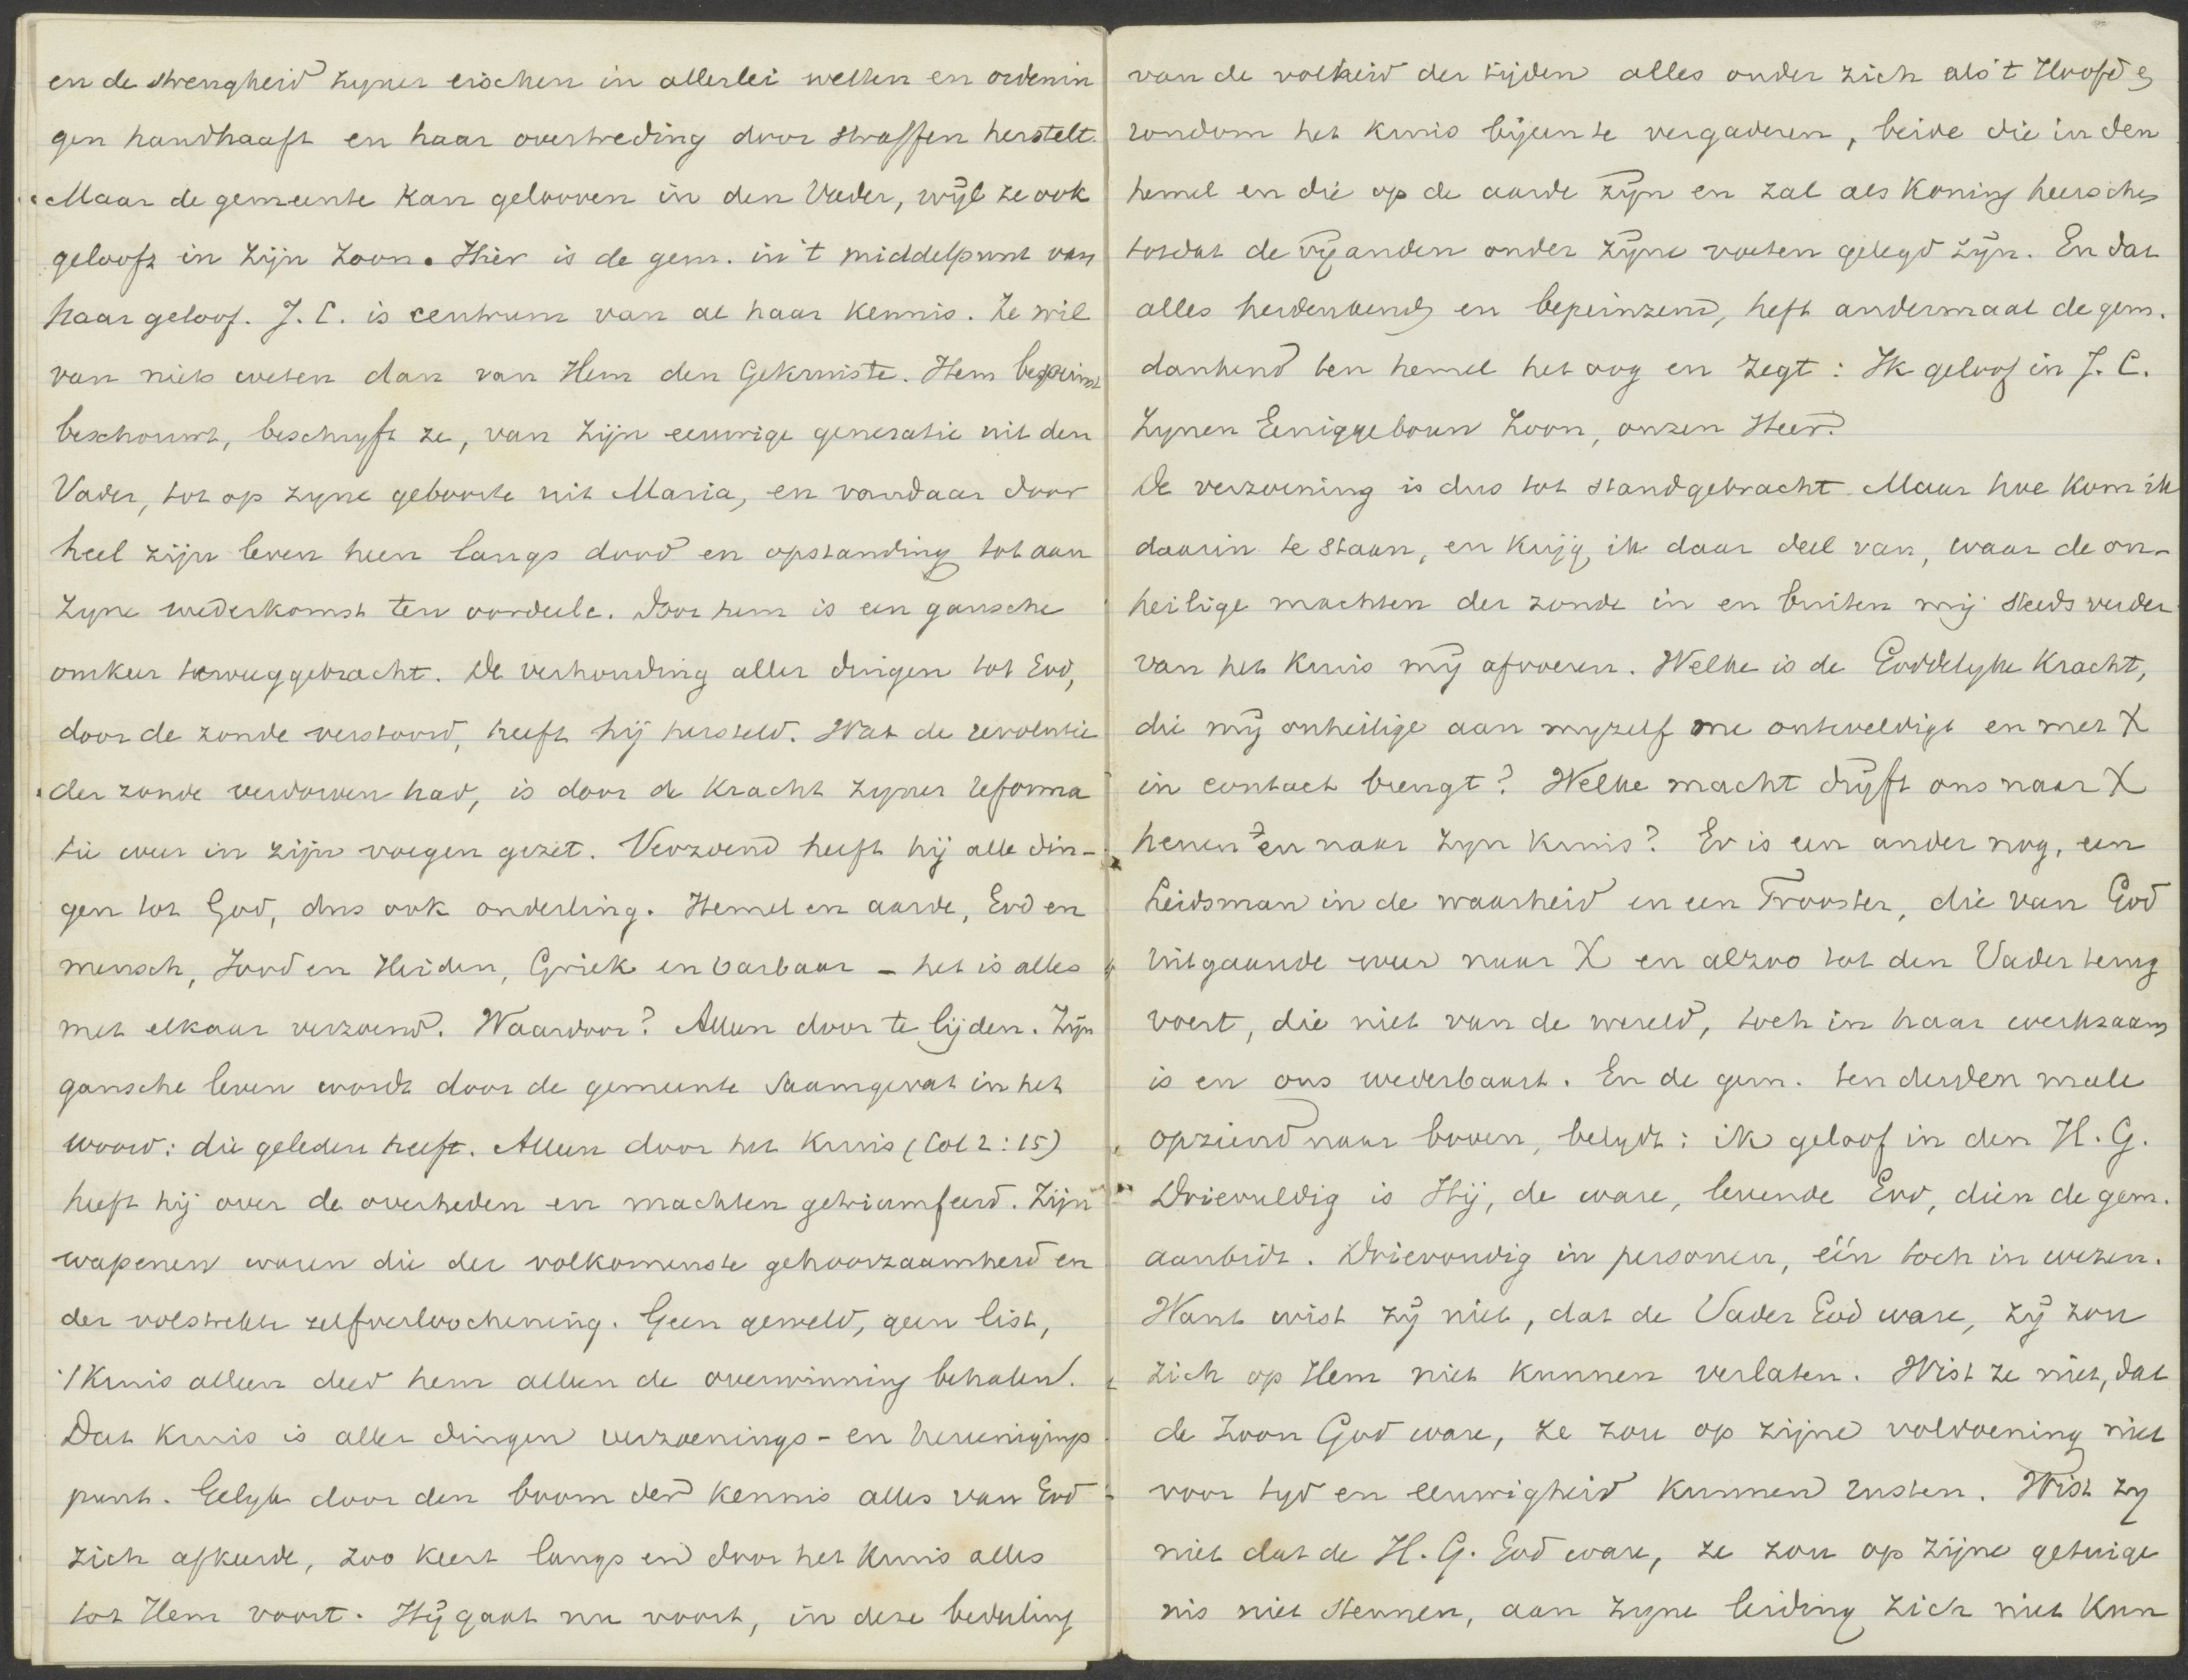 en de strengheid zyner eischen in allerlei wetten en ordenin
gen handhaaft en haar overtreding door straffen herstelt.
Maar de gemeente kan gelooven in den Vader, wijl ze ook
gelooft in zijn Zoon. Hier is de gem. in 't middelpunt van
haar geloof. J. C. is centrum van al haar kennis. Ze wil
van niets weten dan van Hem den Gekruiste. Hem bepeinst
beschouwt, beschryft ze, van zijn eeuwige generatie uit den
Vader, tot op zyne geboorte uit Maria, en vandaar door
heel zijn leven heen langs dood en opstanding tot aan
zyne wederkomst ten oordeele. Door hem is een gansche
omkeer teweeggebracht. De verhouding aller dingen tot God,
door de zonde verstoord, heeft hij hersteld. Wat de revolutie
der zonde verdorven had, is door de kracht zyner reforma
tie weer in zijn voegen gezet. Verzoend heeft hij alle din-
gen tot God, dus ook onderling. Hemel en aarde, God en
mensch, Jood en Heiden, Griek en barbaar - het is alles
met elkaar verzoend. Waardoor? Alleen door te lijden. Zijn
gansche leven wordt door de gemeente saamgevat in het
woord: die geleden heeft. Alleen door het kruis (Col 2:15)
heeft hij over de overheden en machten getriumfeerd. Zijn
wapenen waren die der volkomenste gehoorzaamheid en
der volstrekte zelfverloochening. Geen geweld, geen list,
't kruis alleen deed hem alleen de overwinning behalen.
Dat kruis is aller dingen verzoenings- en vereenigings
punt. Gelyk door den boom der kennis alles van God
zich afkeerde, zoo keert langs en door het kruis alles
tot Hem voort. Hij gaat nu voort, in deze bedeeling
van de volheid der tijden alles onder zich als 't Hoofd en
rondom het kruis bijeen te vergaderen, beide die in den
hemel en die op de aarde zijn en zal als Koning heerschen
totdat de vijanden onder zijne voeten gelegd zijn. En dat
alles herdenkend en bepeinzend, heft andermaal de gem.
dankend ten hemel het oog en zegt: Ik geloof in J. C.
Zynen Eeniggeboren Zoon, onzen Heer.
De verzoening is dus tot stand gebracht. Maar hoe kom ik
daarin te staan, en krijg ik daar deel van, waar de on-
heilige machten der zonde in en buiten mij steeds verder
van het kruis mij afvoeren. Welke is de Goddelyke kracht,
die mij onheilige aan myzelf me ontweldigt en met X
in contact brengt? Welke macht drijft ons naar X
henen en naar zyn kruis? Er is een ander nog, een
Leidsman in de waarheid en een Trooster, die van God
uitgaande weer naar X en alzoo tot den Vader terug
voert, die niet van de wereld, toch in haar werkzaam
is en ons wederbaart. En de gem. ten derden male
opziend naar boven, belydt: ik geloof in den H. G.
Drievuldig is Hij, de ware, levende God, dien de gem.
aanbidt. Drievoudig in personen, één toch in wezen.
Want wist zij niet, dat de Vader God ware, zij zou
zich op Hem niet kunnen verlaten. Wist ze niet, dat
de Zoon God ware, ze zou op zijne voldoening niet
voor tyd en eeuwigheid kunnen rusten. Wist zy
niet dat de H. G. God ware, ze zou op zijne getuige
nis niet steunen, aan zyne leiding zich niet kun